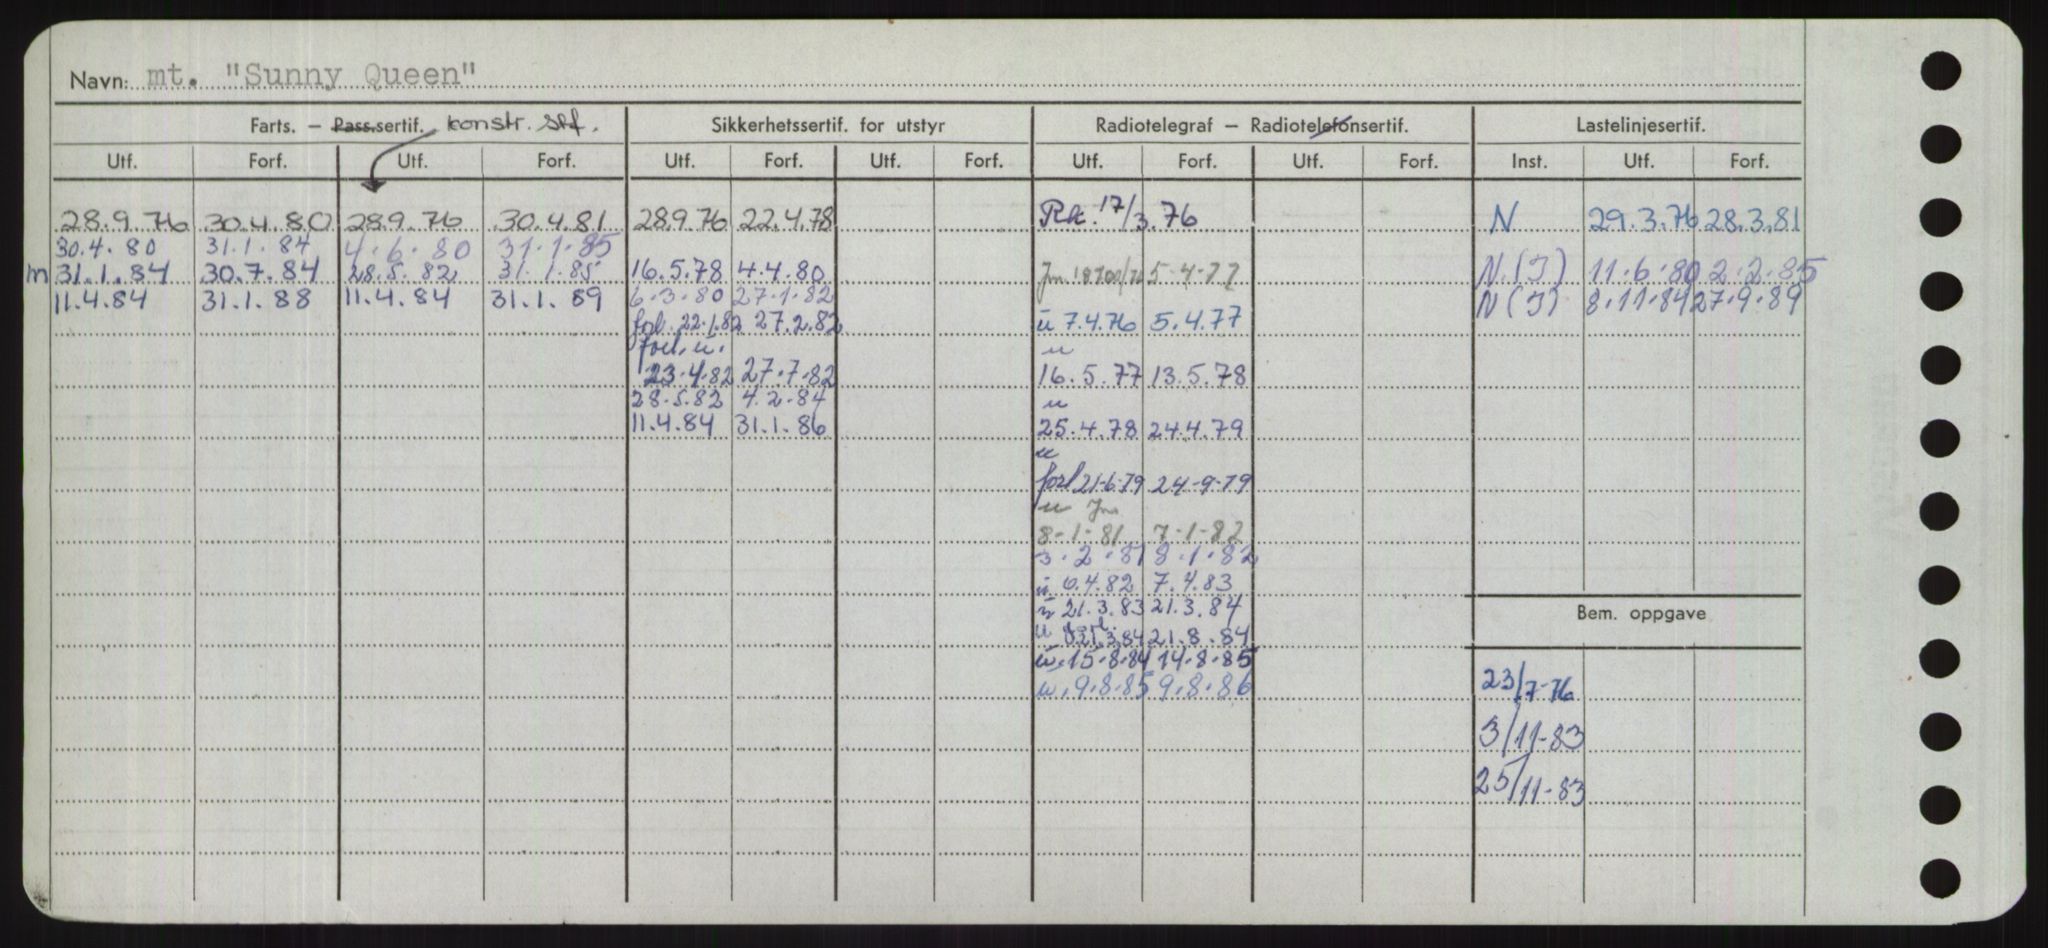 Navn: mt. "Sunny Queen"
Farts. – Pass.sertif. konstr. stf. Sikkerhetssertif. for utstyr Radiotelegraf – Radiotelefonsertif. Lastelinjesertif.
Utf. Forf. Utf. Forf. Utf. Forf. Utf. Forf. Utf. Forf. Utf. Forf. Inst. Utf. Forf.
28.9.76 30.4.80 28.9.76 30.4.81 28.9.76 22.4.78 Rk. 17/3.76 N 29.3.76 28.3.81
30.4.80 31.1.84 4.6.80 31.1.85
m 31.1.84 30.7.84 28.5.82 31.1.85 16.5.78 4.4.80 5-4-77 N.(I) 11.6.80 2.2.85
11.4.84 31.1.88 11.4.84 31.1.89 6.3.80 27.1.82 N(I) 8.11.84 27.9.89
forl. 22.1.82 27.2.82 u 7.4.76 5.4.77
forl. u. u
23.4.82 27.7.82 16.5.77 13.5.78
28.5.82 4.2.84 u
11.4.84 31.1.86 25.4.78 24.4.79
u
forl 21-6-79 24-9-79
u Jm
8-1-81 7-1-82
3.2.81 8.1.82
u 6.4.82 7.4.83
u 21.3.83 21.3.84
Bem. oppgave
u forl. 21.3.84 21.8.84
u. 15.8.84 14.8.85
u. 9.8.85 9.8.86
23/7-76
3/11-83
25/11-83